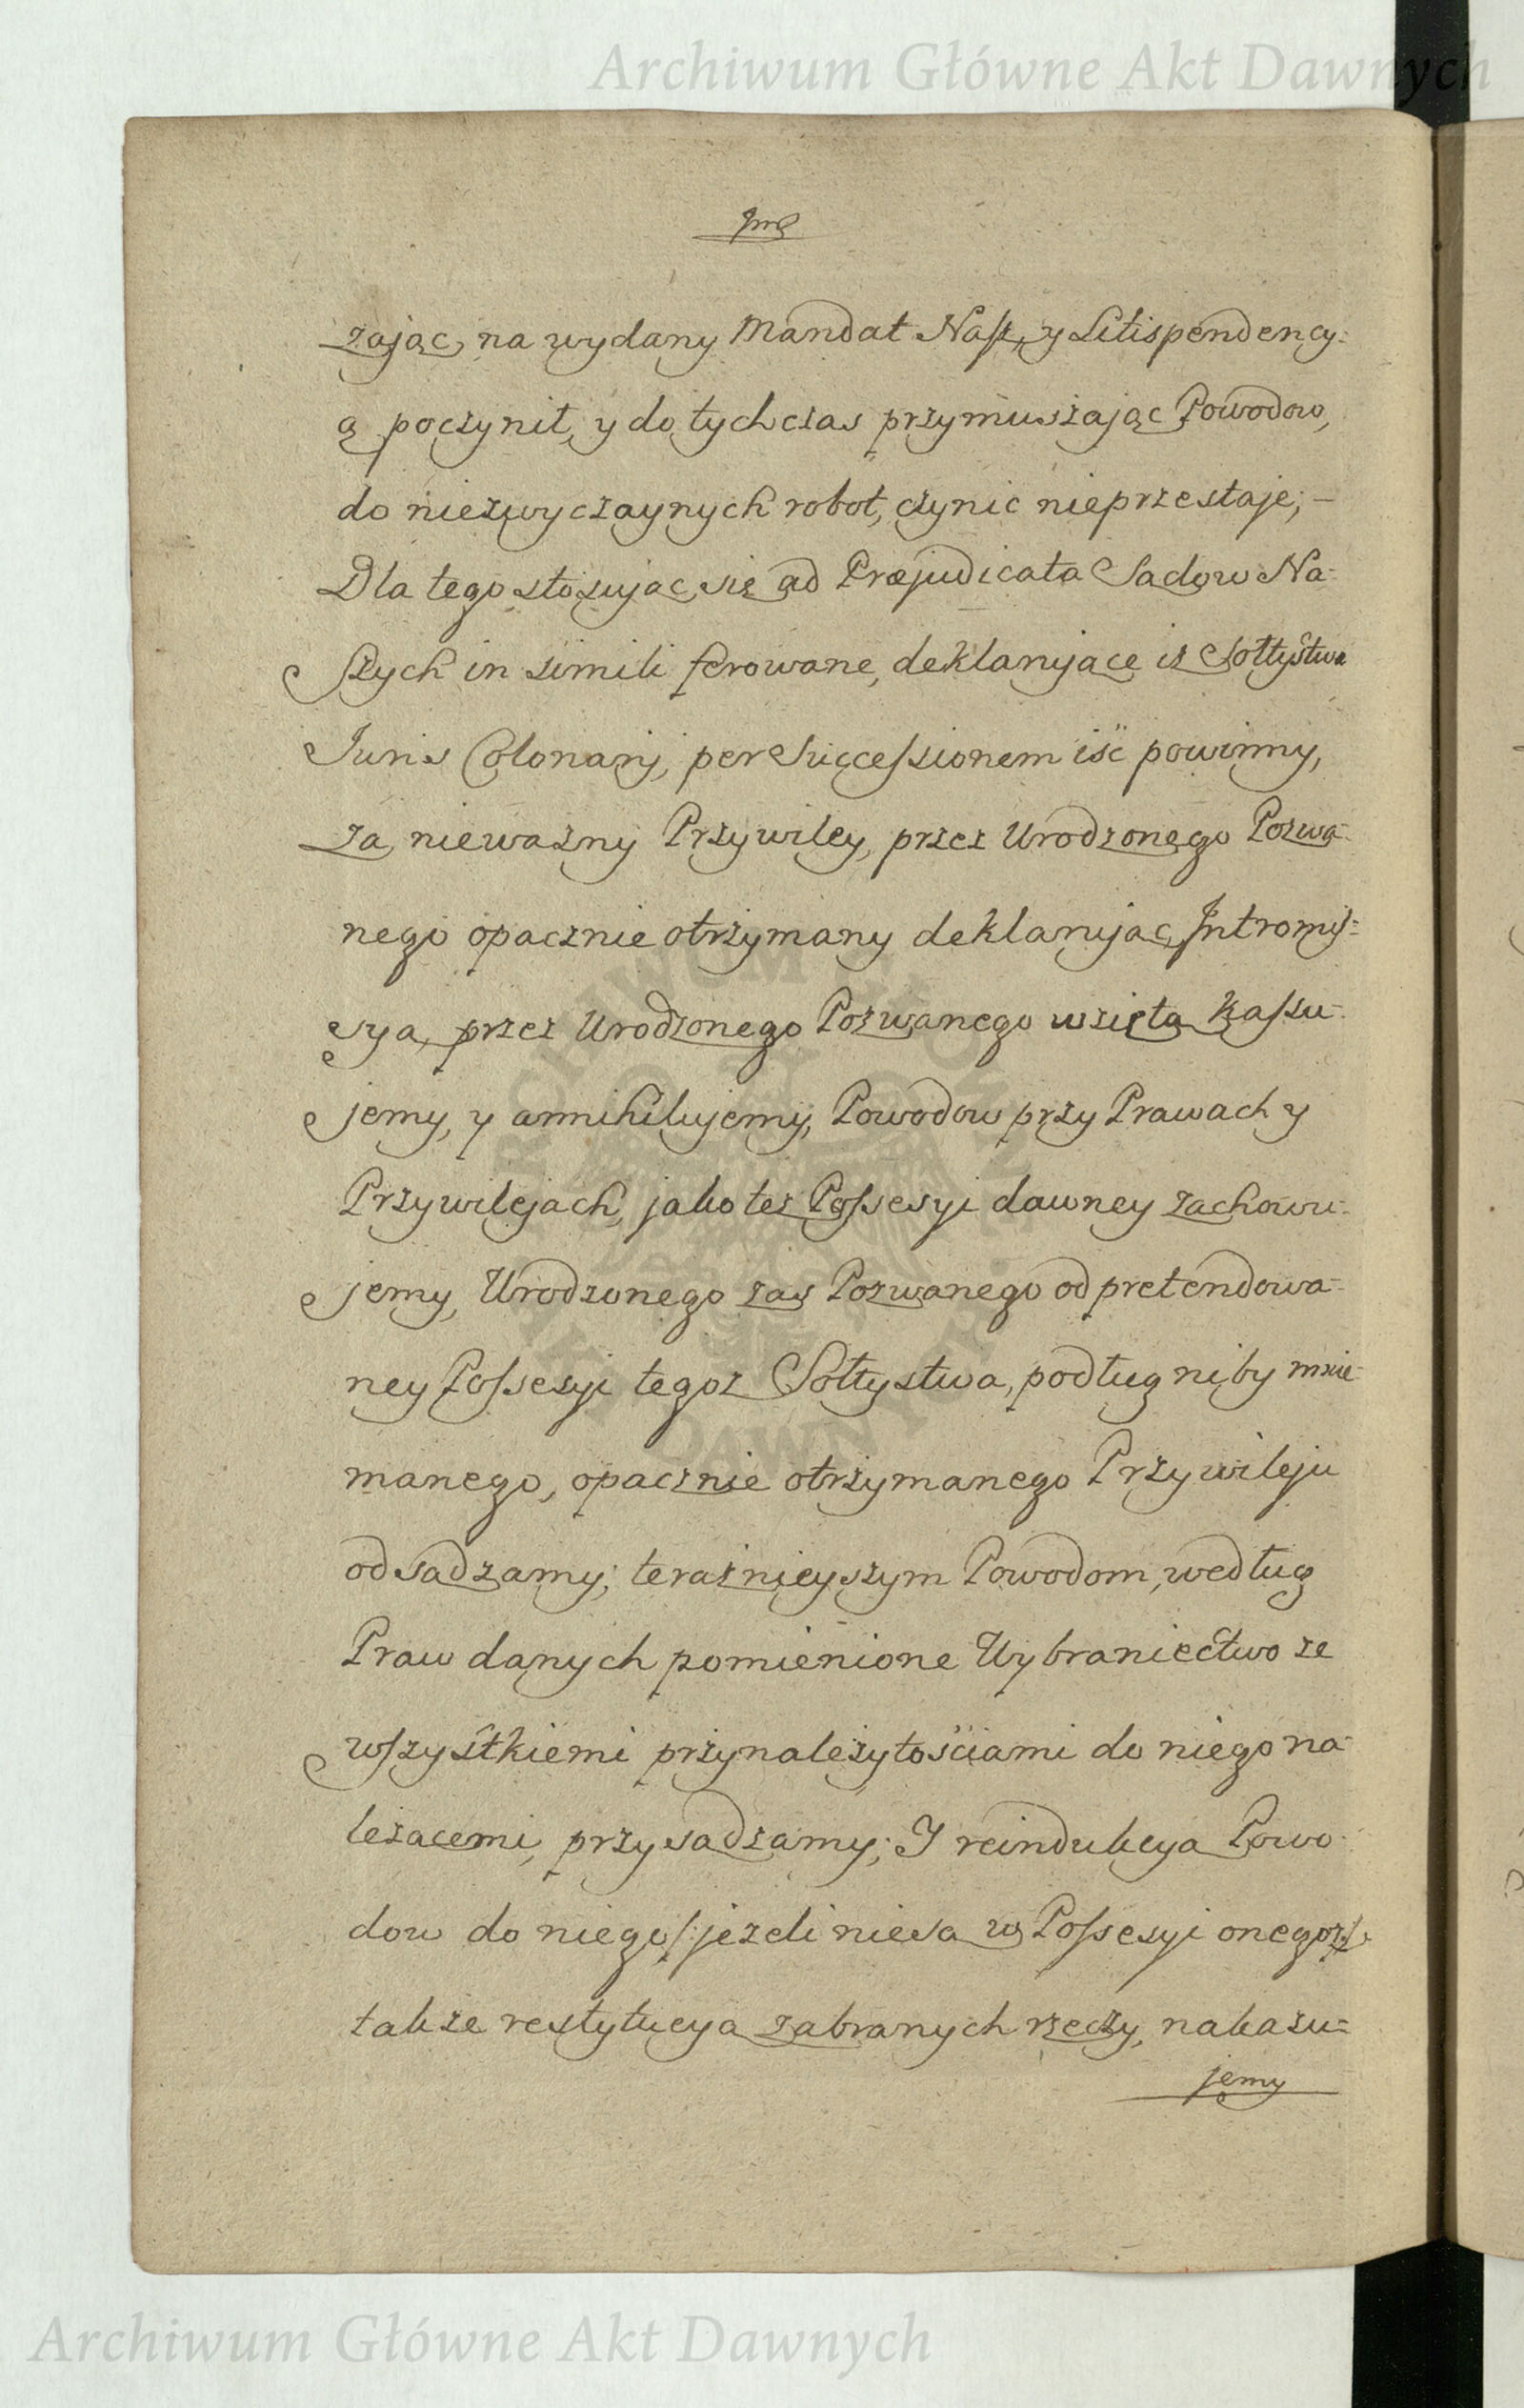 Archiwum Główne Akt Dawnych
zając, na wydany Mandat Nasz, y Litispendency-
ą poczynił, y dotychczas przymuszając Powodow,
do niezwyczaynych robot, czynic nieprzestaje, –
Dla tego stosując się ad Præjudicata Sadow Na-
szych in simili ferowane, deklarujące iż Sołtystwa
Juris Colonarij, per Successionem iść powinny,
za nieważny Przywiley, przez Urodzonego Pozwa-
nego opacznie otrzymany deklarujac, Intromis-
sya, przez Urodzonego Pozwanego wzięta kassu-
jemy, y annihilujemy, Powodow przy Prawach y
Przywilejach, jako też Possesyi dawney zachowu-
jemy, Urodzonego zaś Pozwanego od pretendowa-
ney Possesyi tegoż Sołtystwa, podług niby mnie-
manego, opacznie otrzymanego Przywileju
odsadzamy; teraźnieyszym Powodom, według
Praw danych pomienione Wybraniectwo ze
wszystkiemi przynależytościami do niego na-
leżacemi, przysadzamy; I reindukcya Powo-
dow do niego /: jeżeli niesa w Possesyi onegoż :/
także restytucya zabranych rzeczy, nakazu-
jemy
ARCHIWUM GŁÓWNE AKT DAWNYCH
Archiwum Główne Akt Dawnych